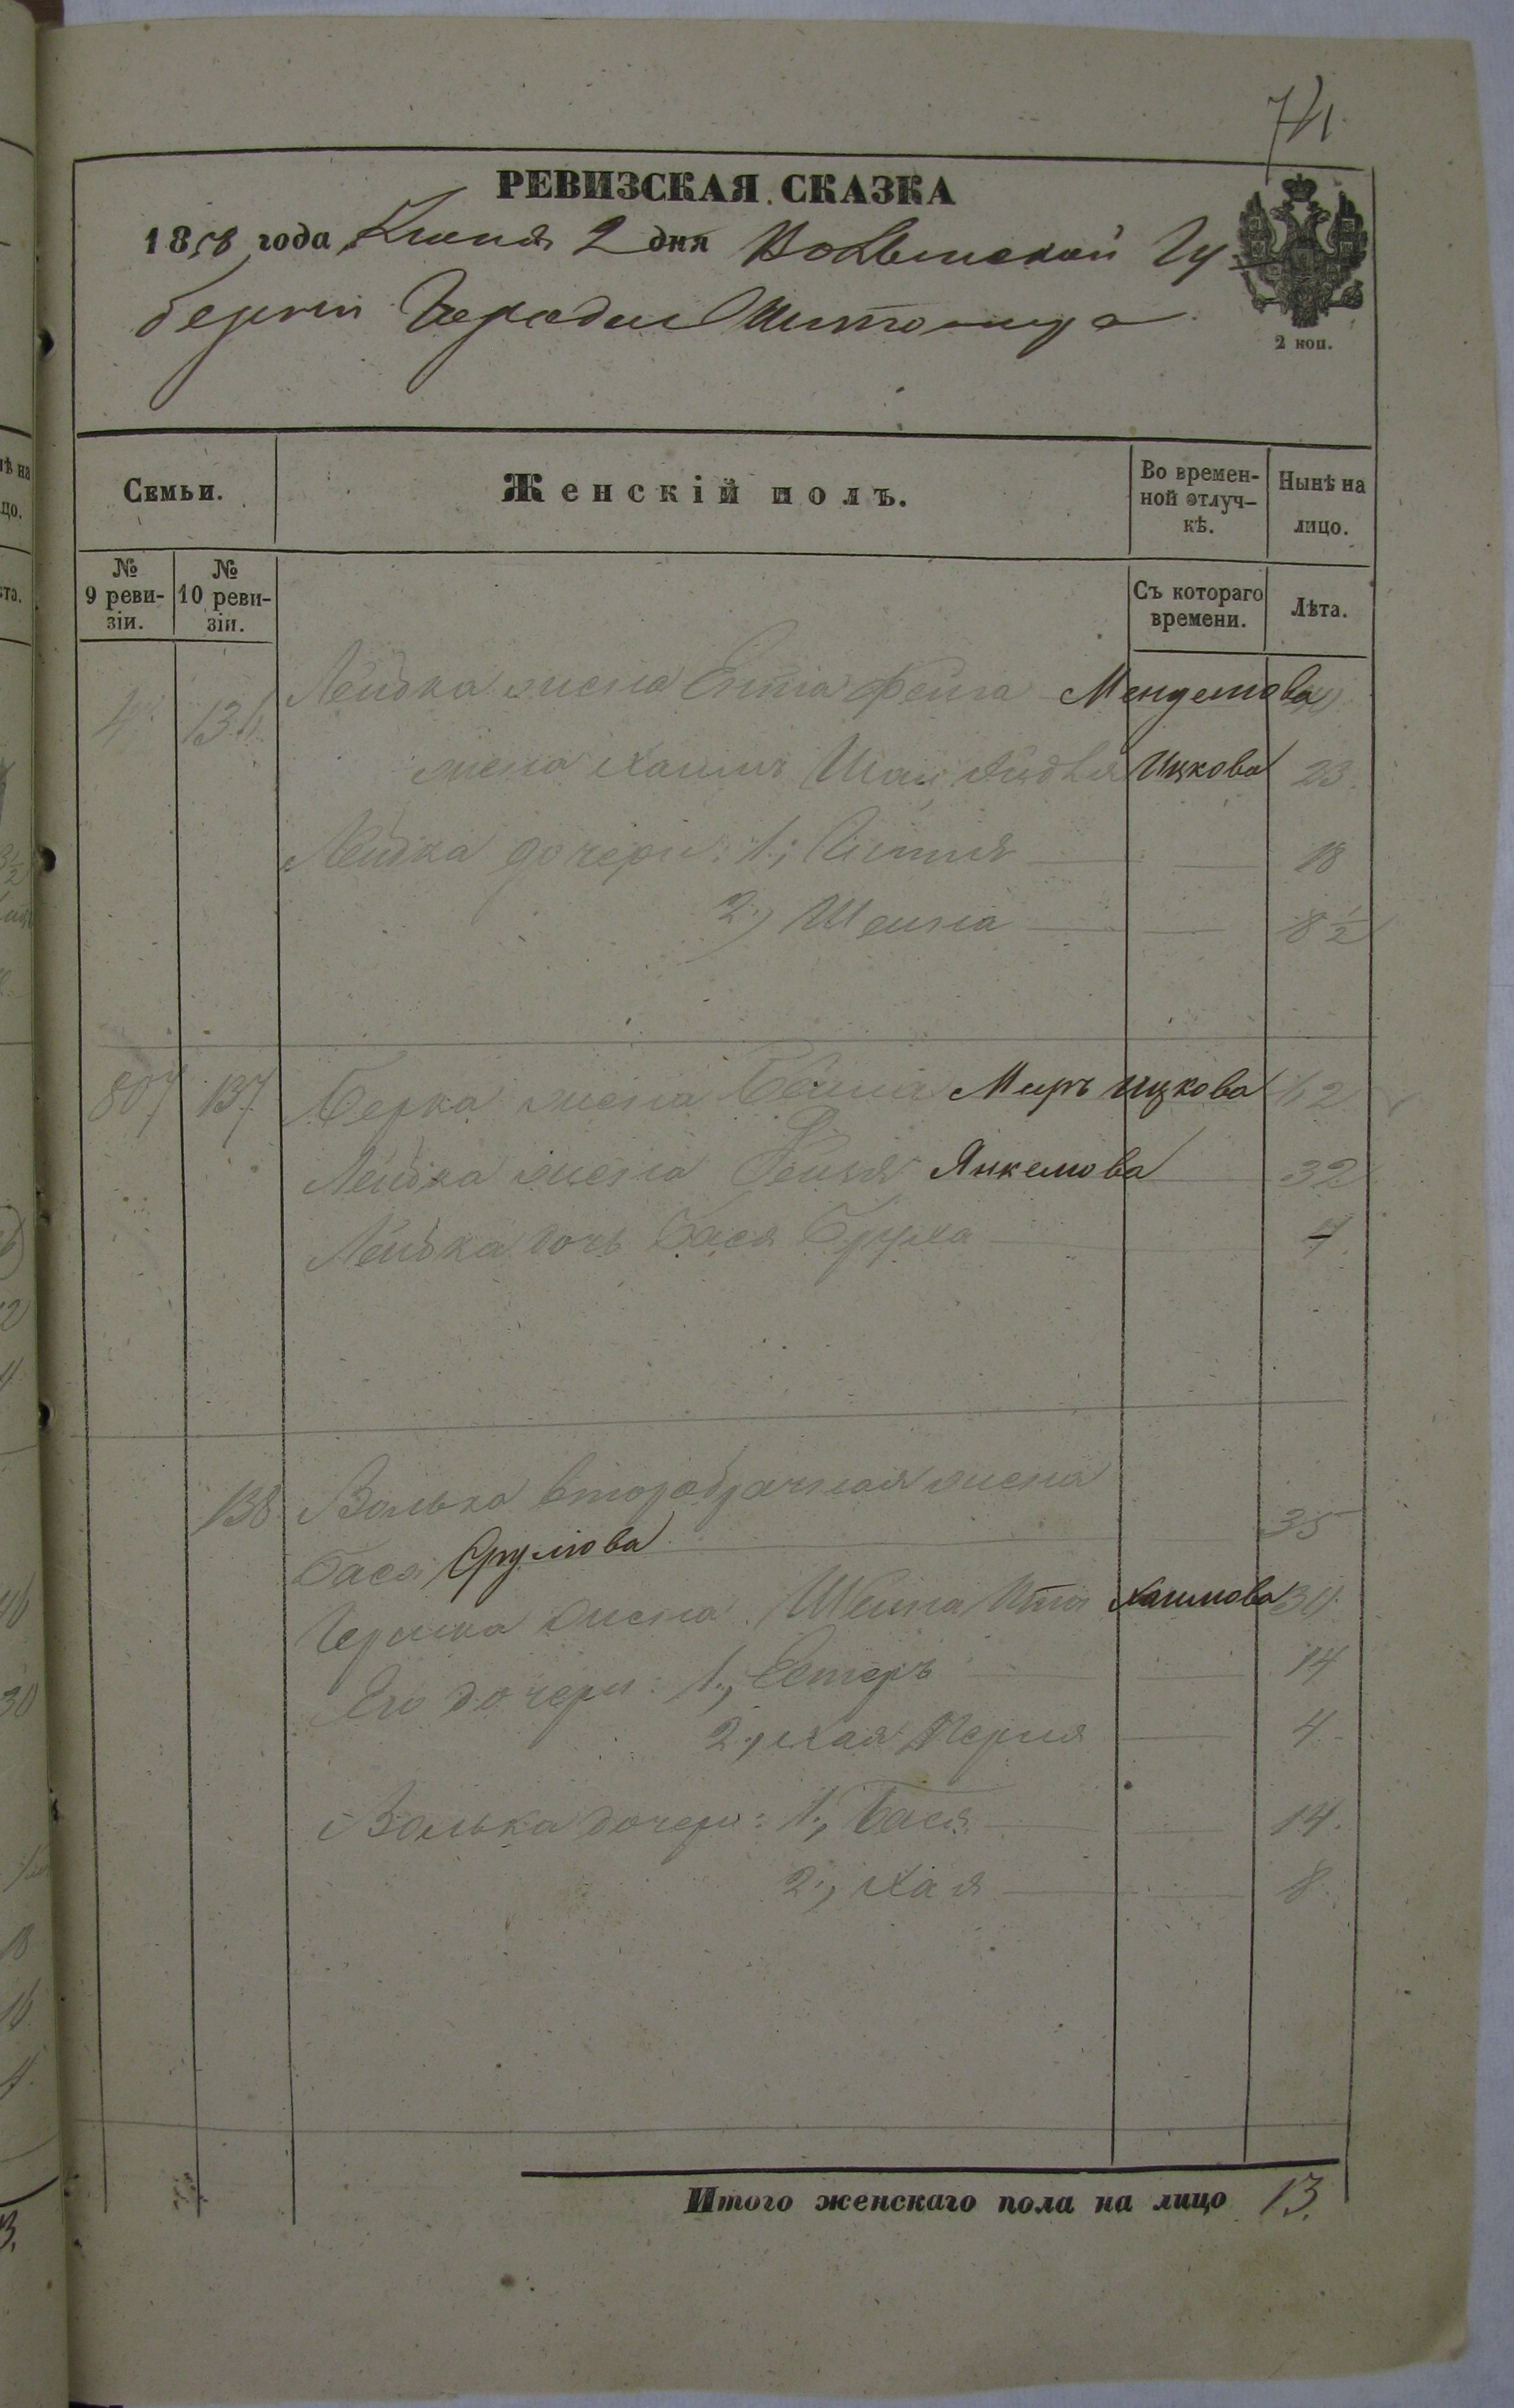 74
РЕВИЗСКАЯ СКАЗКА
1858 года Июня 2 дня Волынской Гу
берніи Города Житомира
2 коп.
Семьи.
Женскій полъ.
Во времен-
ной отлуч-
кѣ.
Нынѣ на
лицо.
№
9 реви-
зіи.
№
10 реви-
зіи.
Съ котораго
времени.
Лѣта.
136 Лейбка жена Ента Фейга Менделова
жена Ицкова 23
Лейбка дочери: 1., 18
2., Шейна 8 1/2
807 137 Берка жена Бейла Миръ Ицкова 62
Лейбка жена Янкелова 32
Лейбка дочь Бася Бруха 7
138 Волька второбрачная жена
Бася Срулова 35
Гершка жена Шейна Ита Хаимова 30
Его дочери: 1., Естеръ 14
2., Хая Перля 4
Волька дочери: 1., Бася 14.
2., Хая 8
Итого женскаго пола на лицо 13.